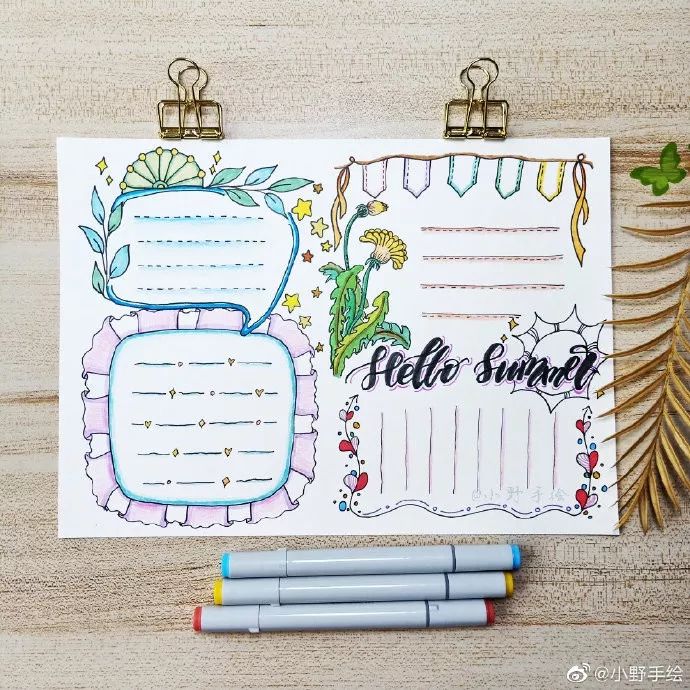 Hello Summer
@小野手绘
@小野手绘